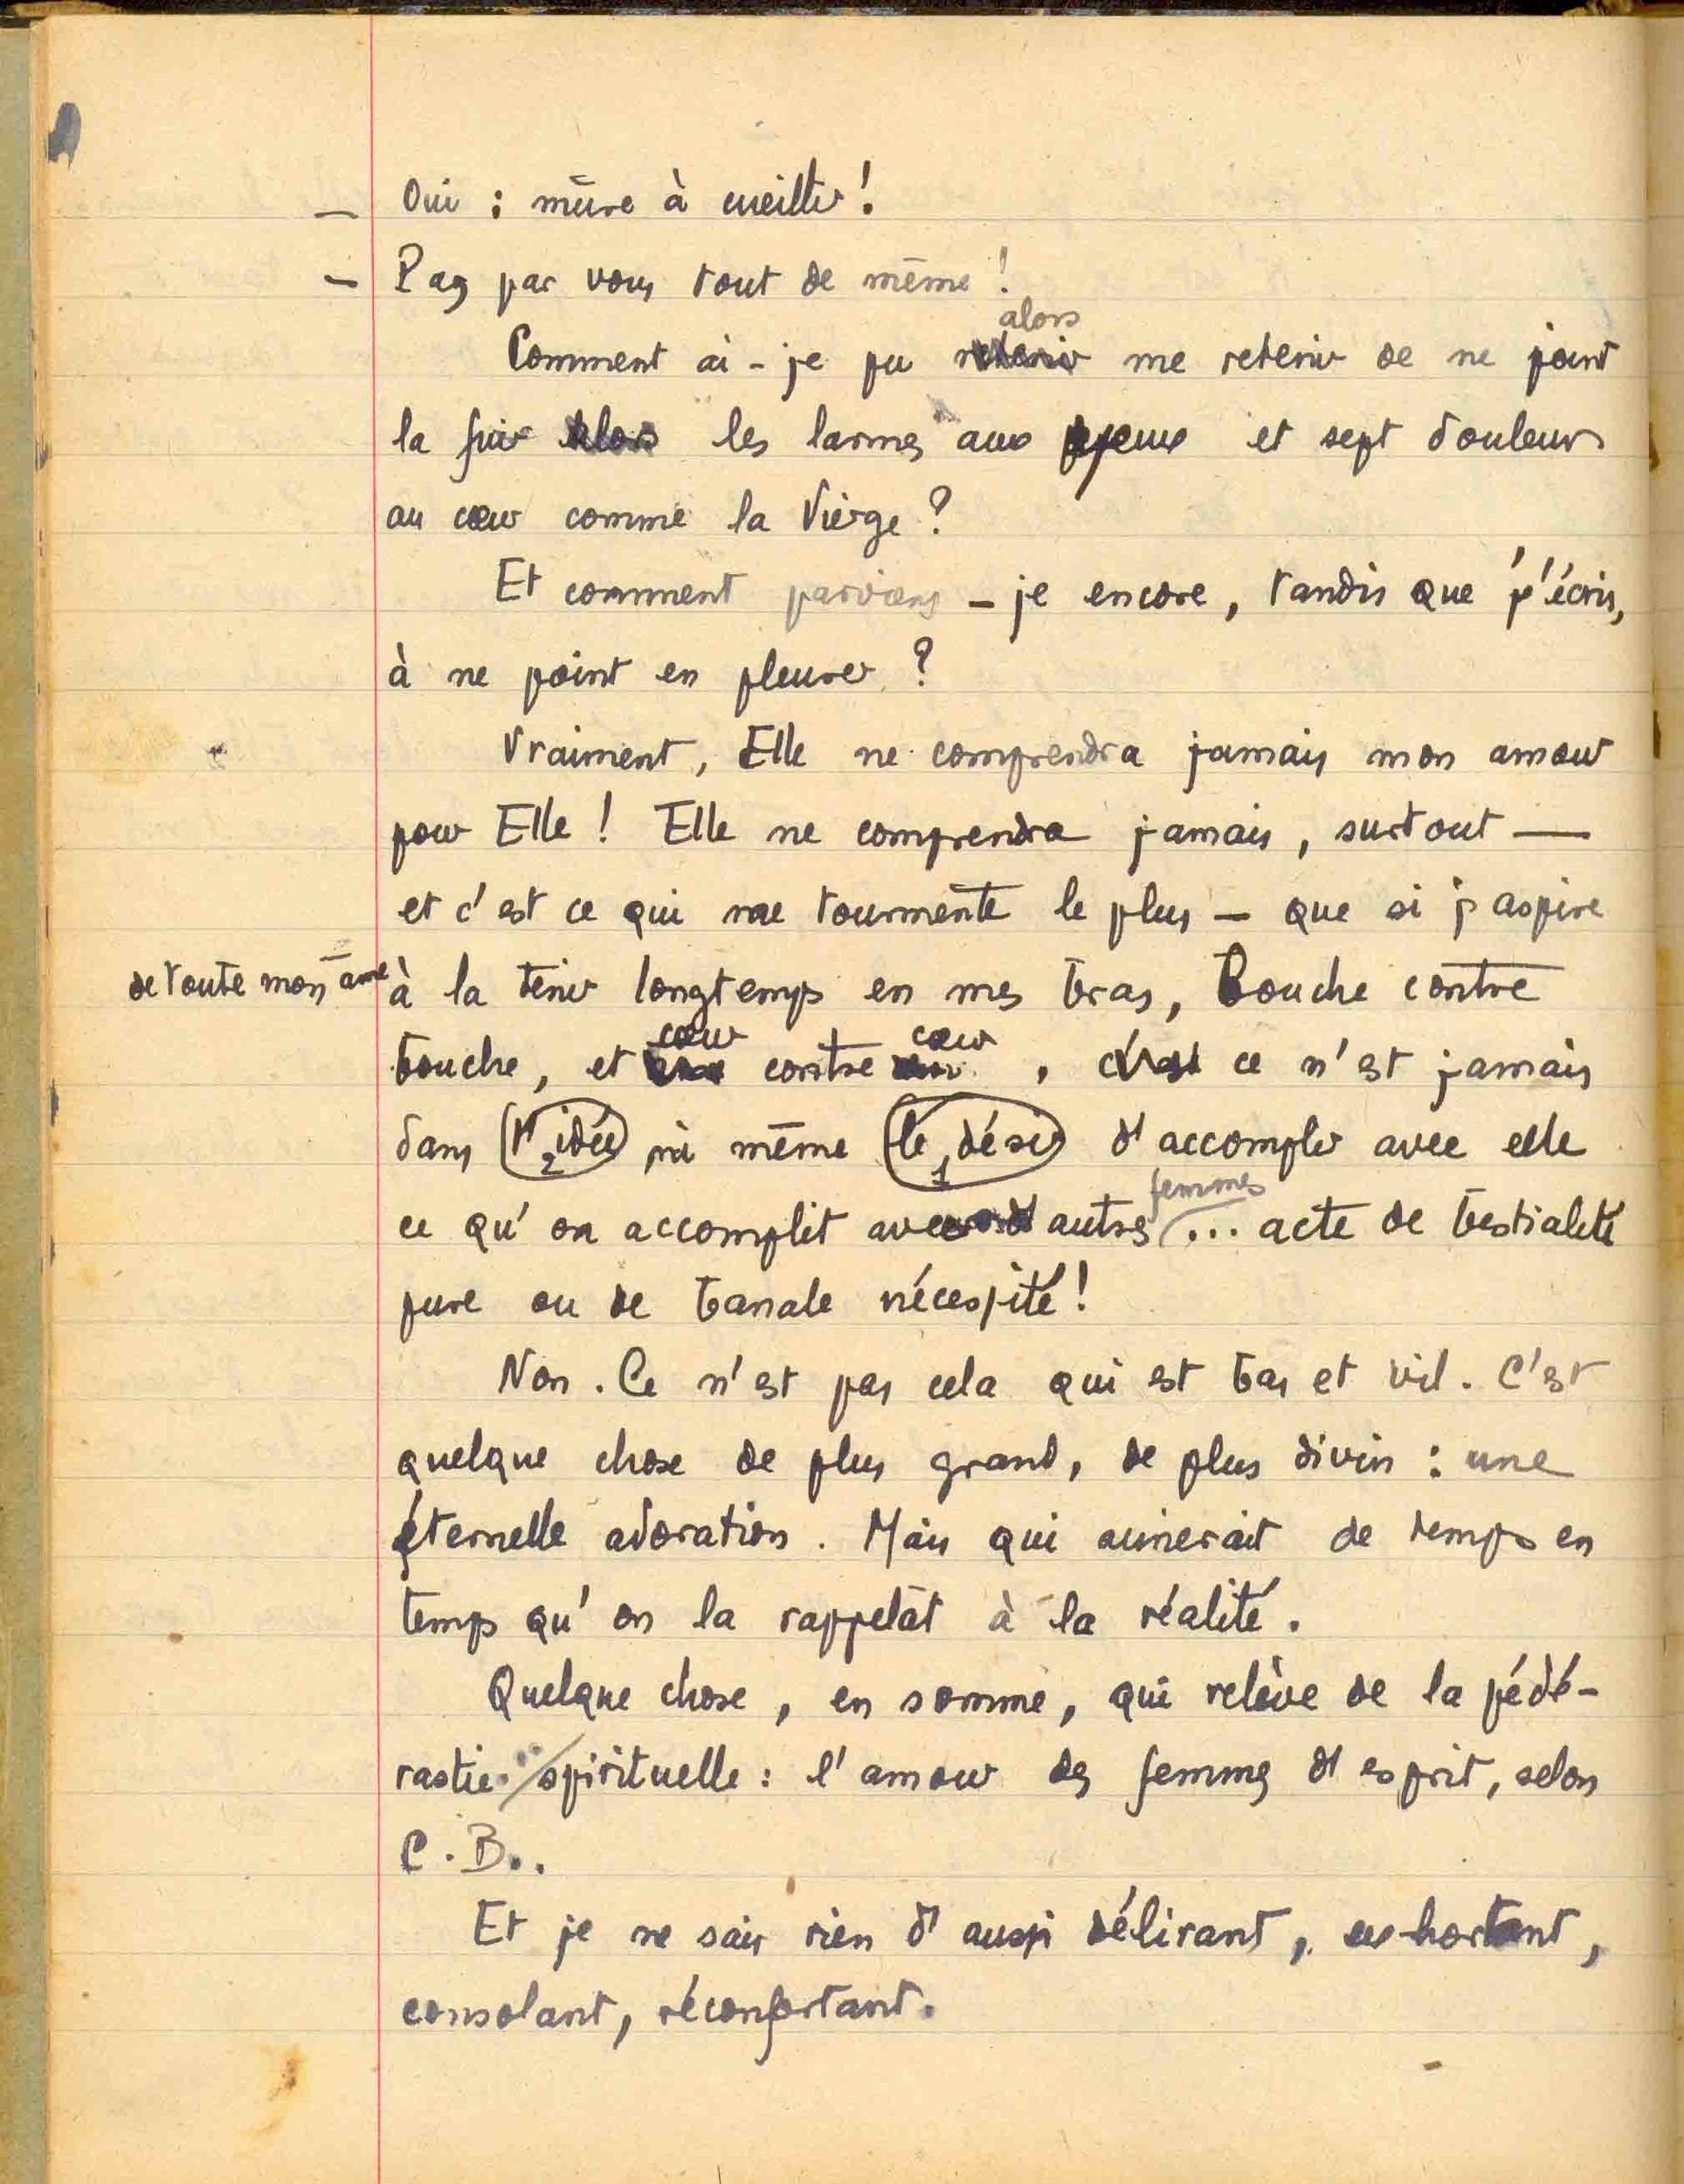 — Oui : mûre à cueillir !
— Pas par vous tout de même !
alors
Comment ai-je pu retenir me retenir de ne point
la fuir alors les larmes aux yeux et sept douleurs
au cœur comme la Vierge ?
Et comment parviens-je encore, tandis que j'écris,
à ne point en pleurer ?
Vraiment, Elle ne comprendra jamais mon amour
pour Elle ! Elle ne comprendra jamais, surtout —
et c'est ce qui me tourmente le plus — que si j'aspire
de toute mon âme à la tenir longtemps en mes bras, bouche contre
cœur cœur
bouche, et contre , c'est ce n'est jamais
dans l'idée ni même le désir d'accomplir avec elle
2 1
femmes
ce qu'on accomplit avec d'autres ... acte de bestialité
pure ou de banale nécessité !
Non. Ce n'est pas cela qui est bas et vil. C'est
quelque chose de plus grand, de plus divin : une
éternelle adoration. Mais qui aimerait de temps en
temps qu'on la rappelât à la réalité.
Quelque chose, en somme, qui relève de la pédé-
rastie spirituelle : l'amour des femmes d'esprit, selon
C. B..
Et je ne sais rien d'aussi délirant, exhortant,
consolant, réconfortant.